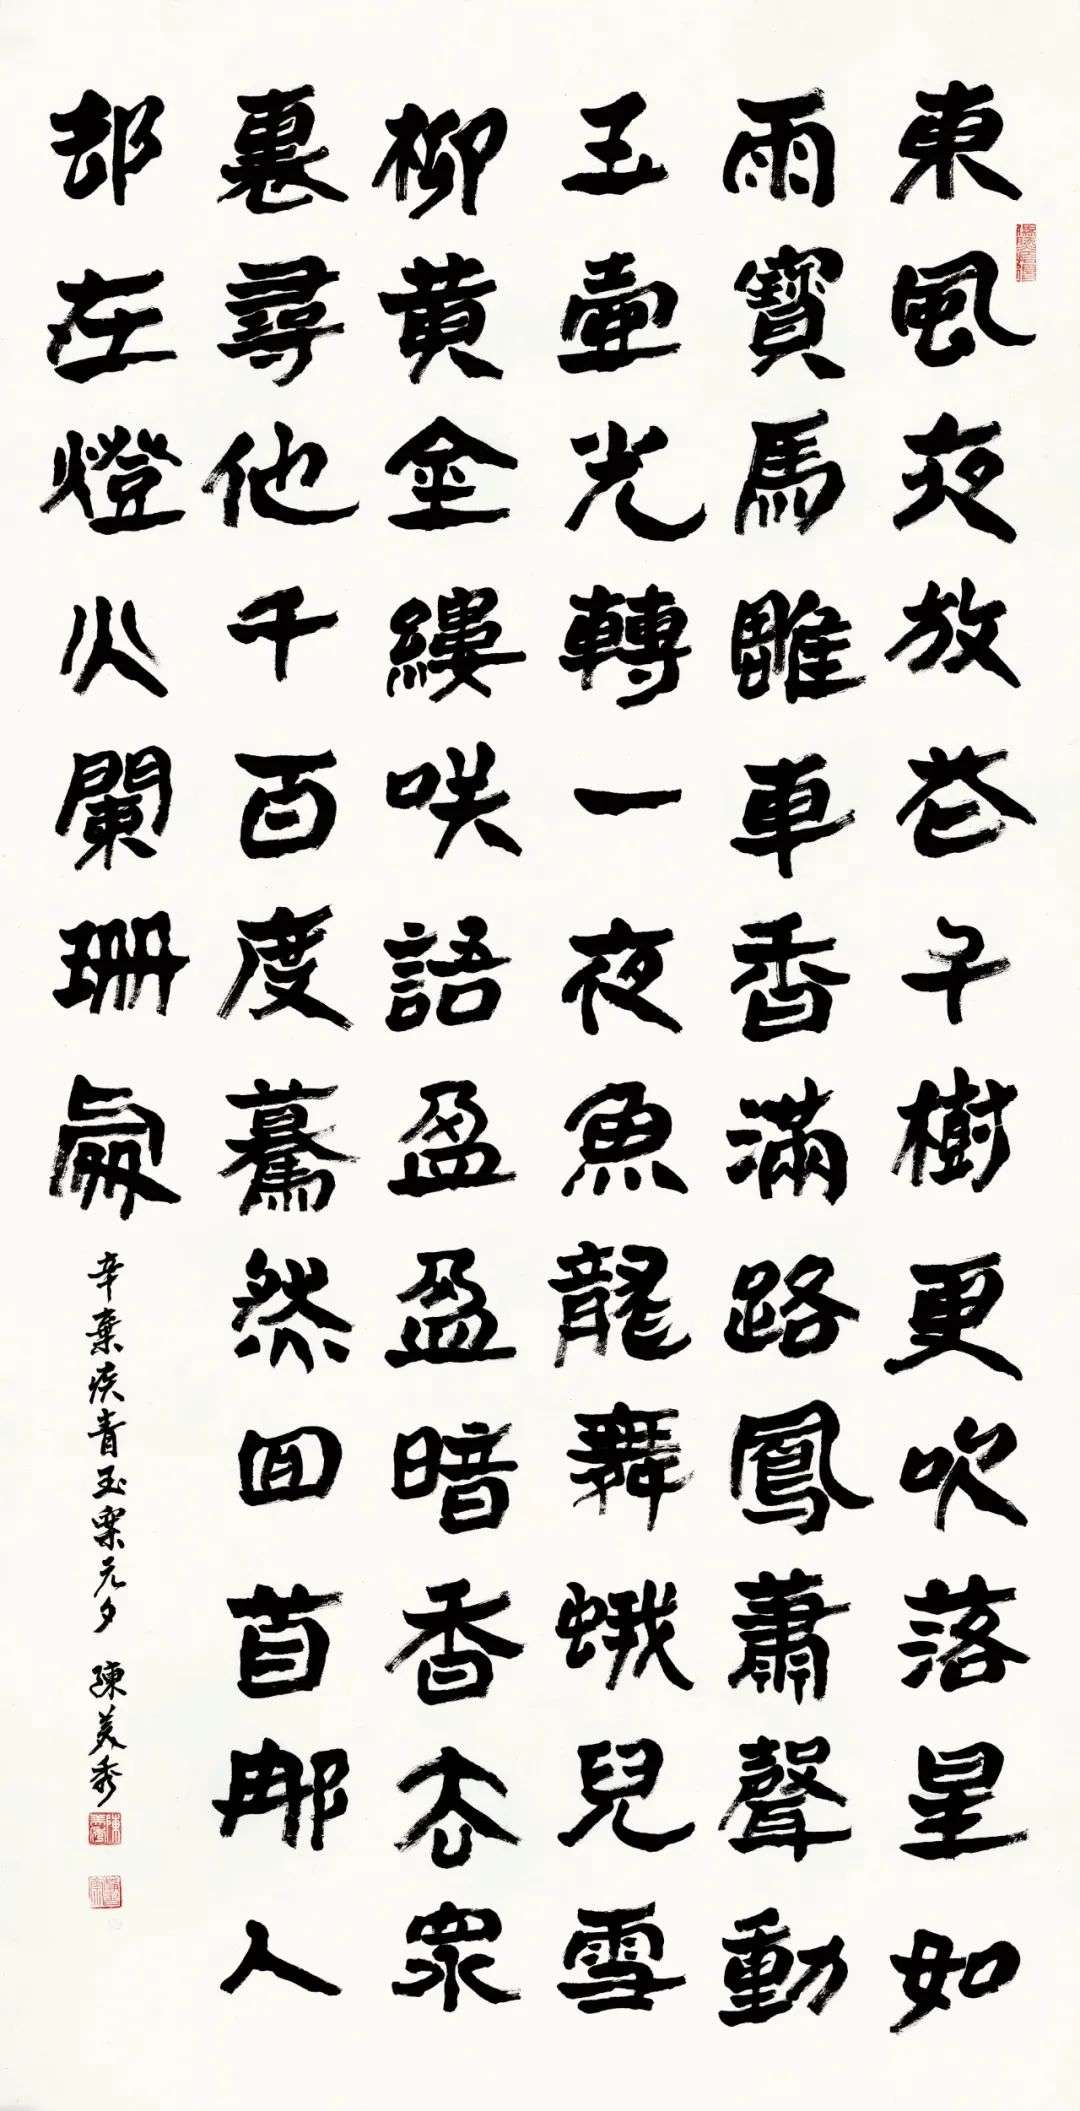 東風夜放花千樹更吹落星如
雨寶馬雕車香滿路鳳蕭聲動
玉壺光轉一夜魚龍舞蛾兒雪
柳黃金縷咲語盈盈暗香去眾
裏尋他千百度驀然回首那人
却在燈火闌珊處
辛棄疾青玉案元夕 陳美秀